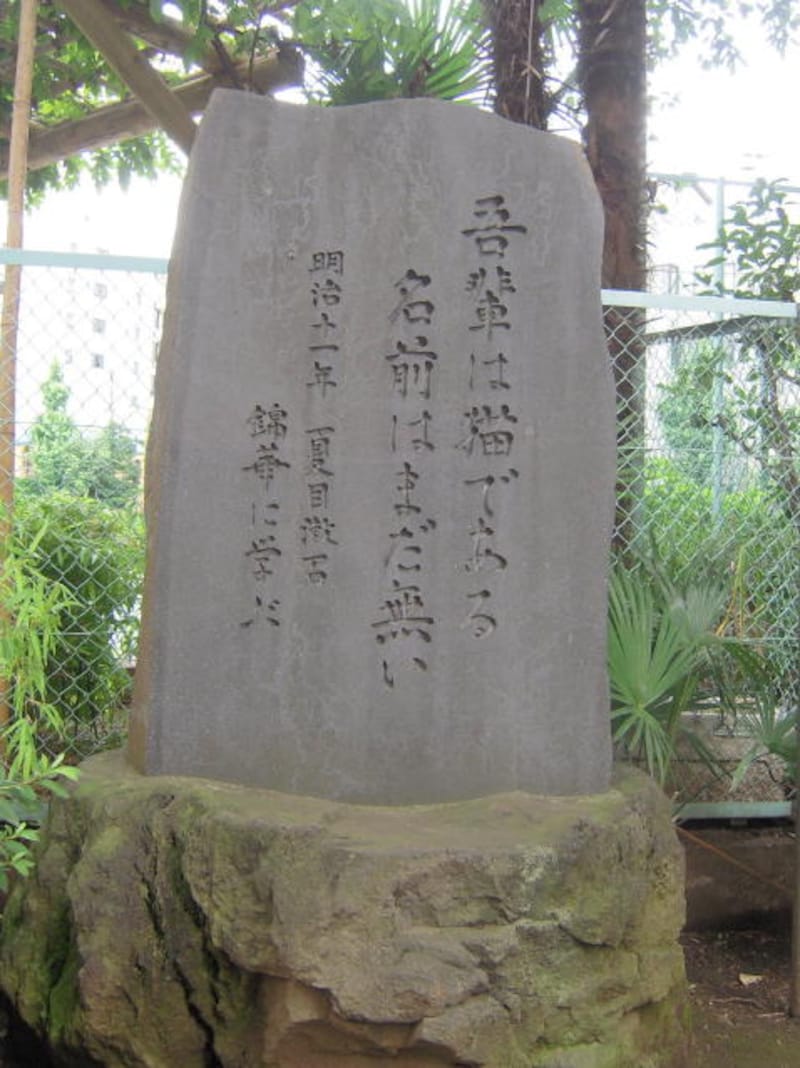 吾輩は猫である
名前はまだ無い
明治十一年 夏目漱石
錦華に学ぶ